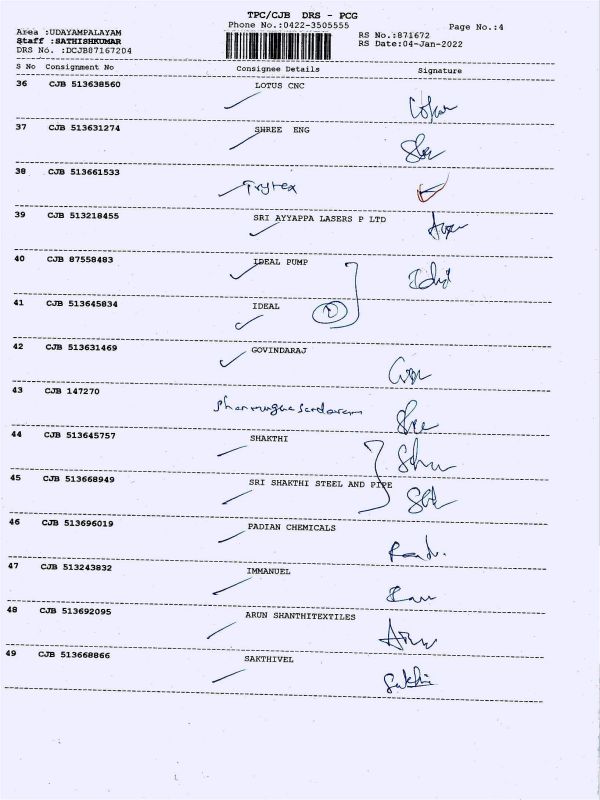 TPC/CJB DRS - PCG
Phone No.:0422-3505555 Page No.:4
Area :UDAYAMPALAYAM
Staff :SATHISHKUMAR RS No.:871672
DRS No. :DCJB87167204 RS Date:04-Jan-2022
S No Consignment No Consignee Details Signature
36 CJB 513638560 LOTUS CNC
37 CJB 513631274 SHREE ENG
38 CJB 513661533
39 CJB 513218455 SRI AYYAPPA LASERS P LTD
40 CJB 87558483 IDEAL PUMP
41 CJB 513645834 IDEAL
42 CJB 513631469 GOVINDARAJ
43 CJB 147270
44 CJB 513645757 SHAKTHI
45 CJB 513668949 SRI SHAKTHI STEEL AND PIPE
46 CJB 513696019 PADIAN CHEMICALS
47 CJB 513243832 IMMANUEL
48 CJB 513692095 ARUN SHANTHITEXTILES
49 CJB 513668866 SAKTHIVEL Sakthi